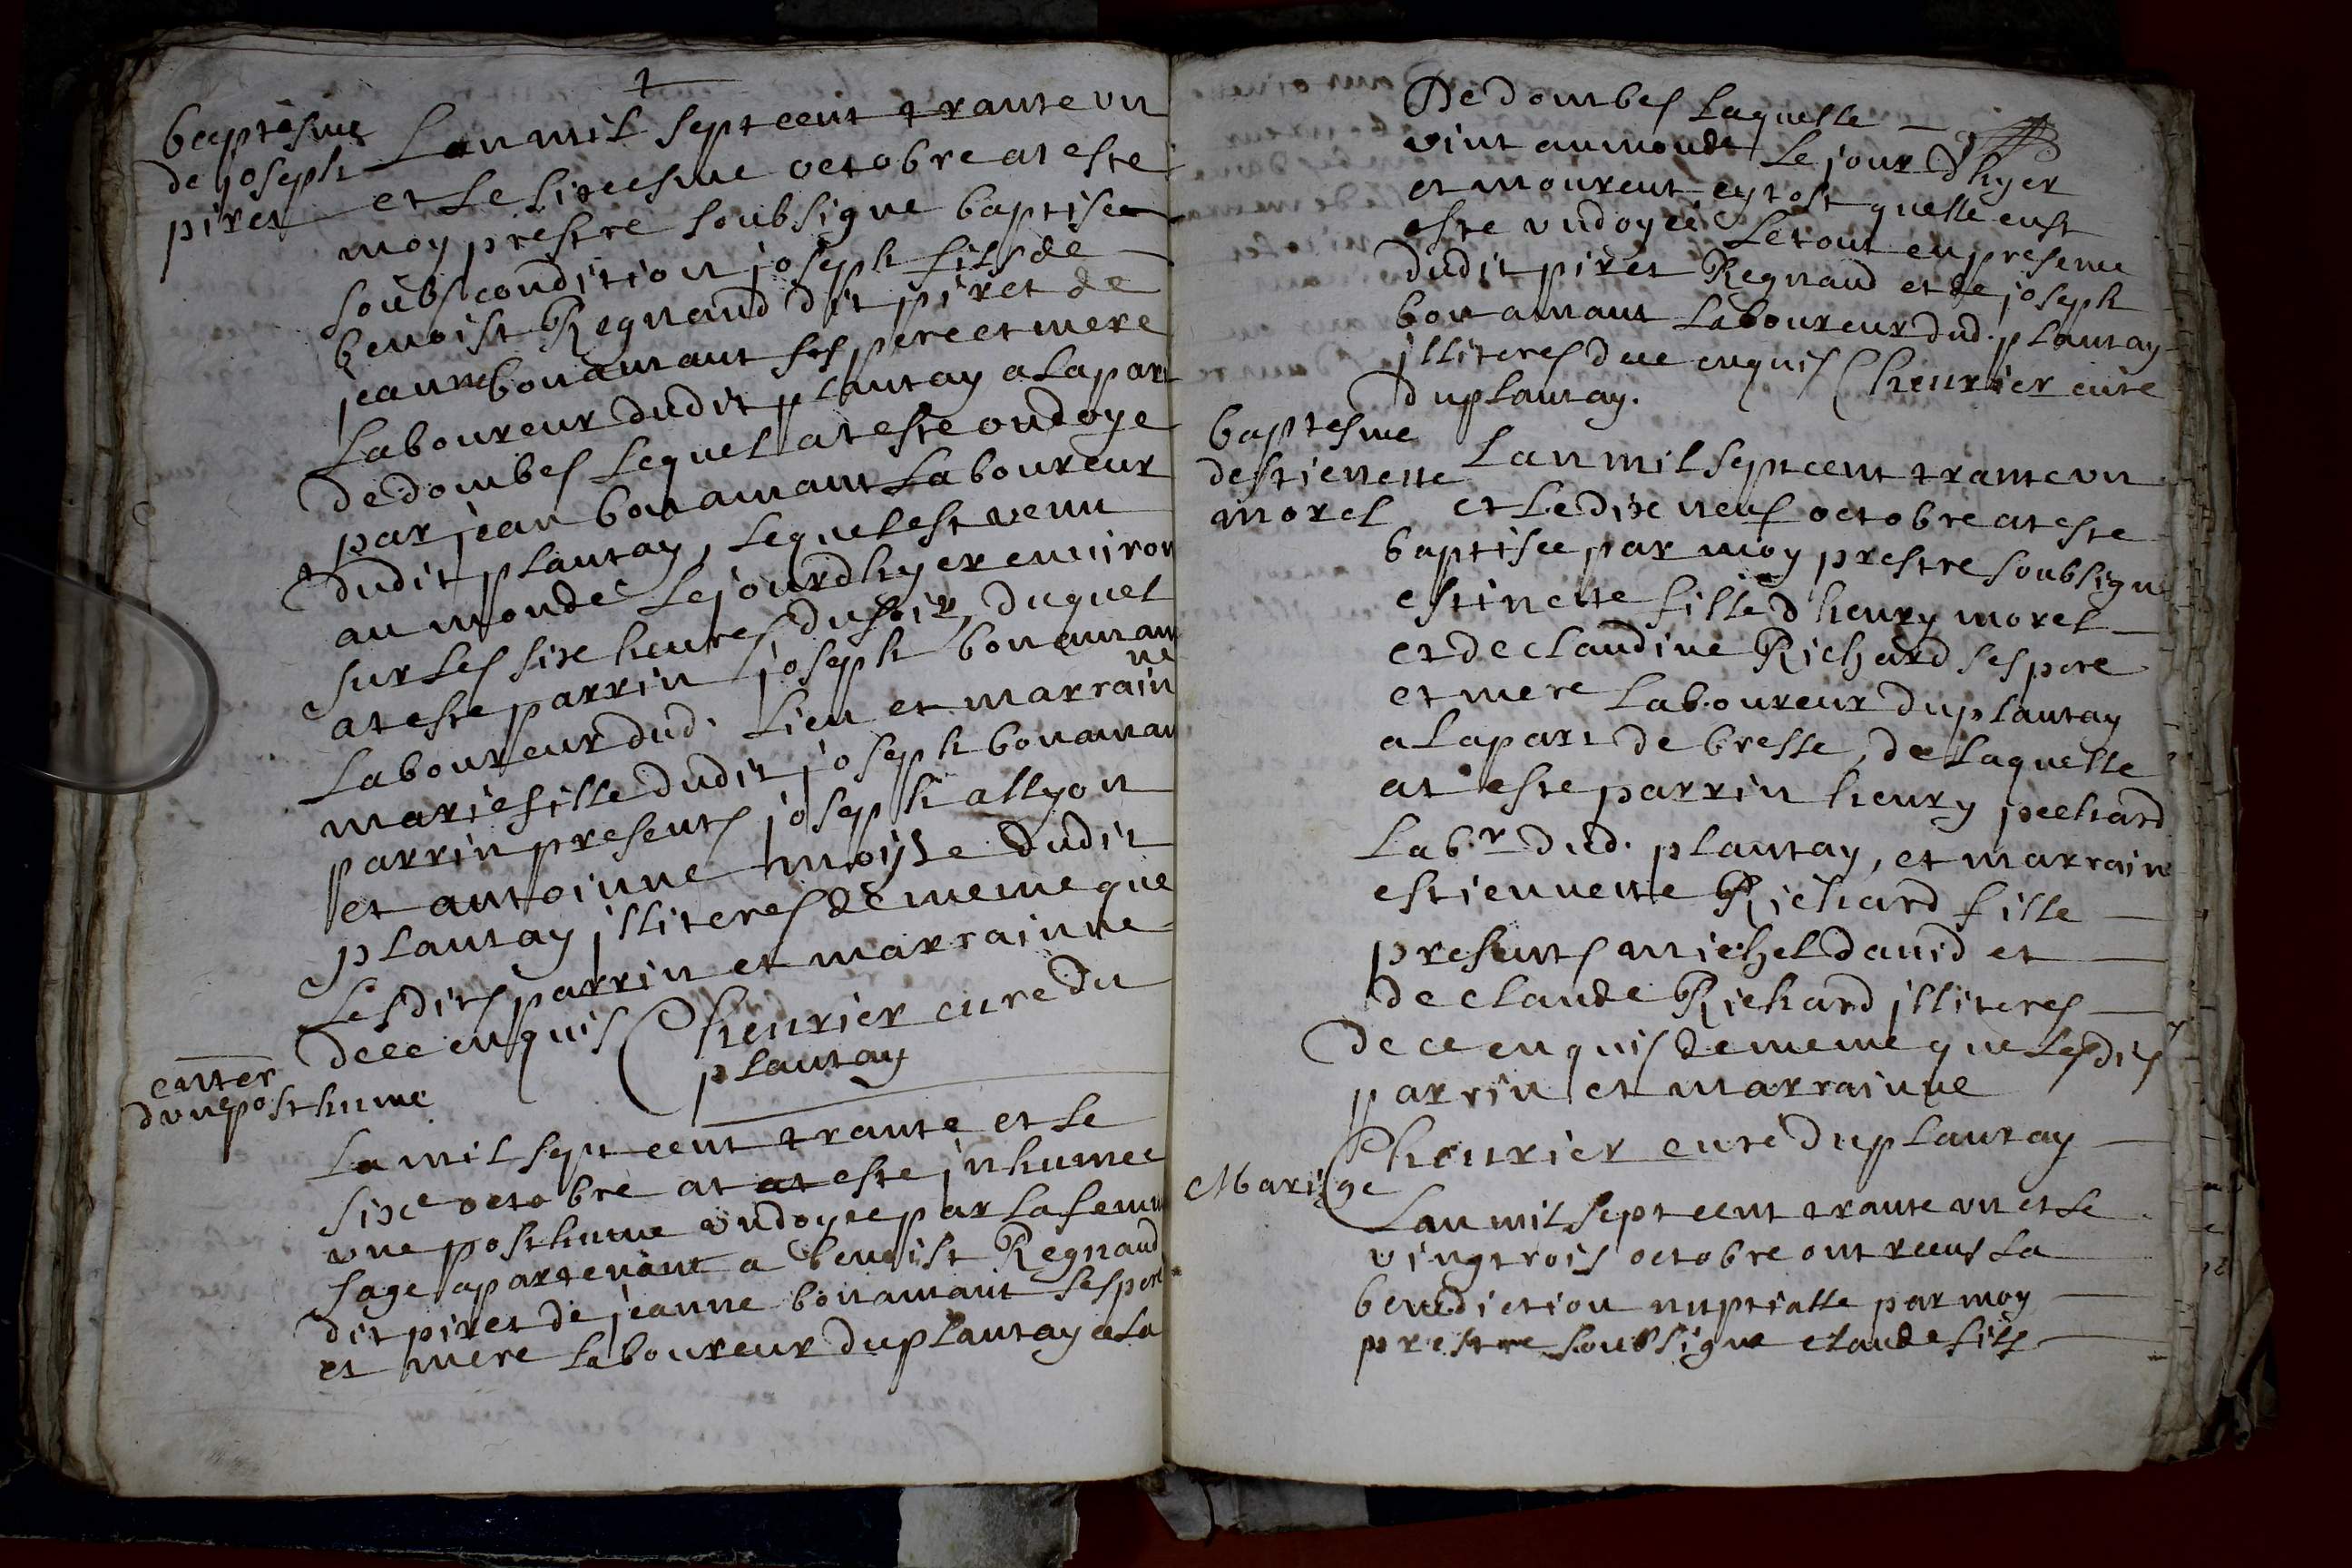 baptesme
de joseph
piret
Lan mil sept cent trante vn
et le sixcesme octobre at este
moy prestre soubsigne baptisee
soubs condition joseph fils de
benoist Regnaud dit piret de
jeanne bonamant ses pere et mere
Laboureur dudit plantay a la part
de dombes lequel at este ondoye
par jean bonamant Laboureur
dudit plantay, lequel est venu
au monde le jour dhyer environ
sur les sixe heures du soir, duquel
at este parrin joseph bonaman
Laboureur dud. lieu et marrain
ne
marie fille dudit joseph bonaman
parrin presents joseph allyon
et antoinne moyse dudit
plantay illiteres de meme que
Lesdits parrin et marrainne
dece enquis Cheurier cure du
plantay
enter
dune posthume
La mil sept cent trante et le
sixe octobre at at este inhumee
vne posthume ondoyee par la femm
sage apartenant a benoist Regnaud
dit piret de jeanne bonamant ses pere
et mere laboureur du plantay a la
De dombes laquelle
vint au monde le jour dhyer
et mourent eytost quelle eust
este vndoyee Le tout en presence
dudit piret Regnaud et de joseph
bonamant laboureur dud. plantay
illiteres dece enquis Cheurier cure
du plantay.
baptesme
destienette
morel
Lan mil sept cent trante vn
et le dixe neuf octobre at este
baptisee par moy prestre soubsigne
estinette fille dhenry morel
et de claudine Richard ses pere
et mere laboureur du plantay
a la part de bresse, de laquelle
at este parrin henry pechard
Lab.r dud. plantay, et marrain
estiennette Richard fille
presents michel david et
de claude Richard illiteres
de ce enquis de meme que lesdits
parrin et marrainne
Cheurier curé du plantay
Mariage
Lan mil sept cent trante vn et le
vingtrois octobre ont receus la
benediction nuptialle par moy
prestre soubsigne claude fils